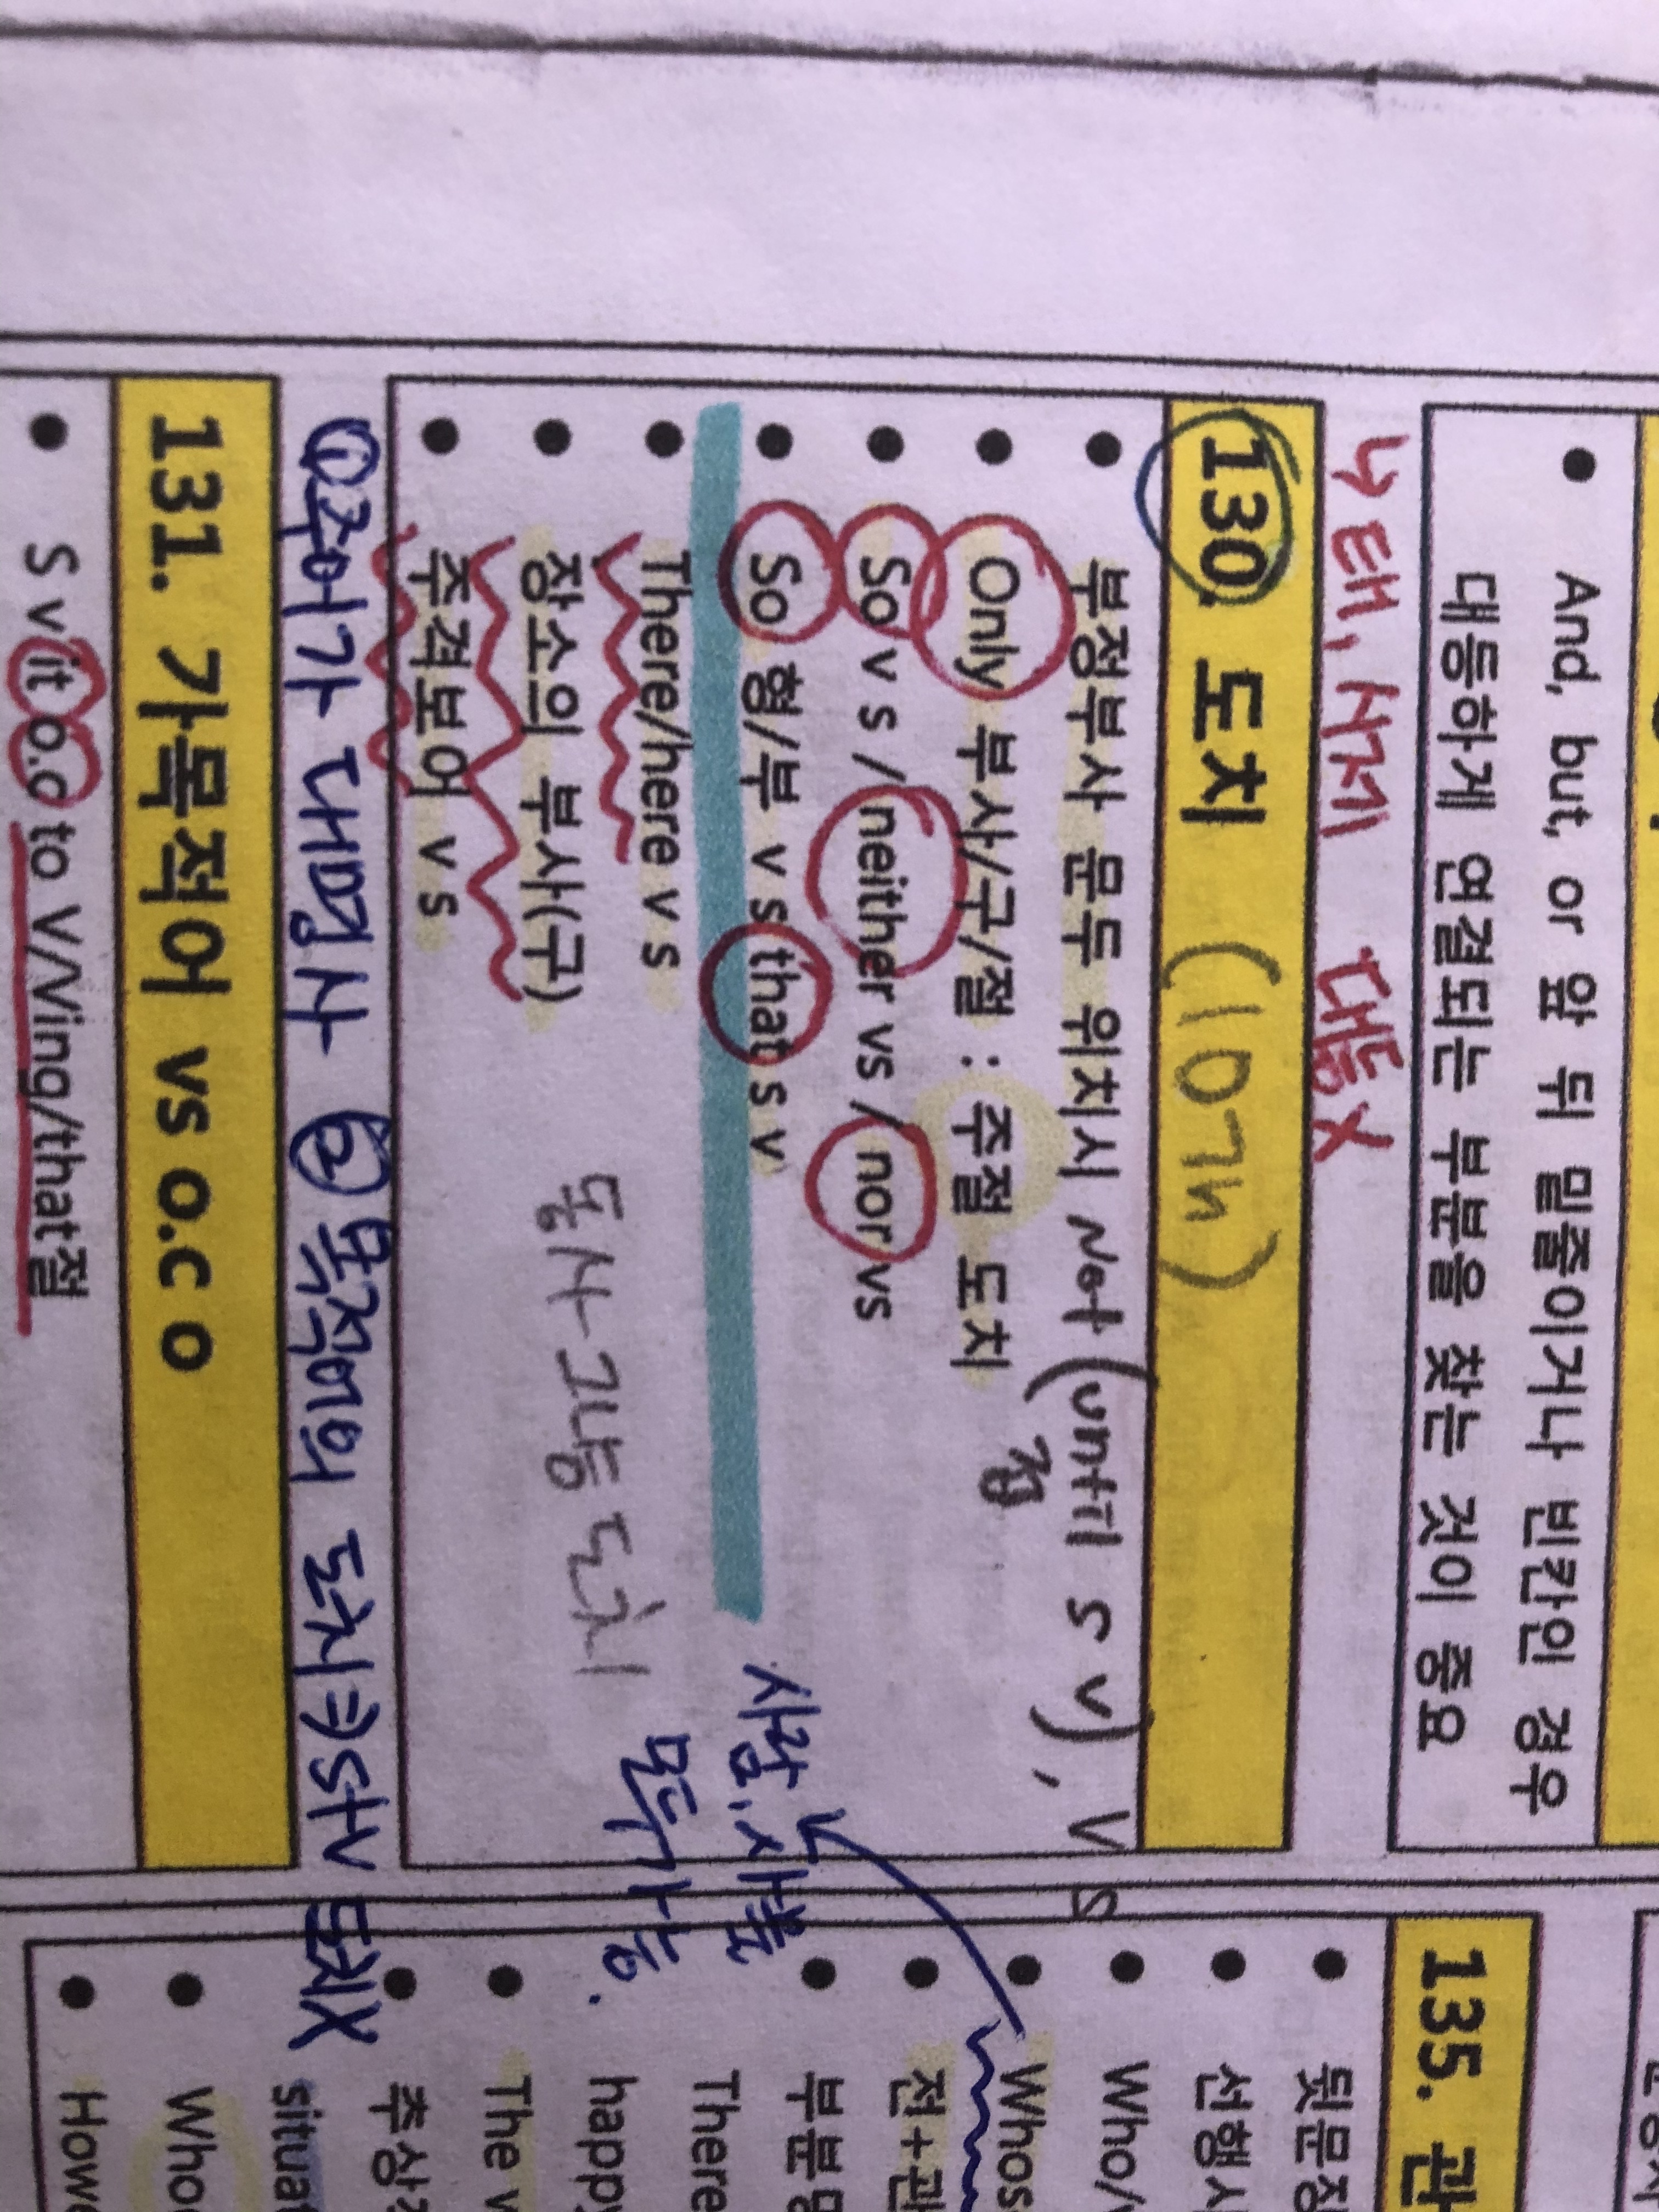 And, but, or 앞 뒤 밑줄이거나 빈칸인 경우
대등하게 연결되는 부분을 찾는 것이 중요
↳ 태, 시제 대등X
130. 도치 (10개)
부정부사 문두 위치시 Not (until s v), V S
절
Only 부사/구/절 : 주절 도치
So v s / neither vs / nor vs
So 형/부 v s that s v
There/here v s
장소의 부사(구)
주격보어 v s
동사 그냥 도치
사람, 사물
모두 가능.
① 주어가 대명사 ② 목적어의 도치 ⇒ S+V 도치X
131. 가목적어 vs o.c o
S v it o.c to V/Ving/that절
135.
뒷문장
선행사
Who/
Whos
전+관
부분명
There
happy
The v
추상
situat
Who
Howe